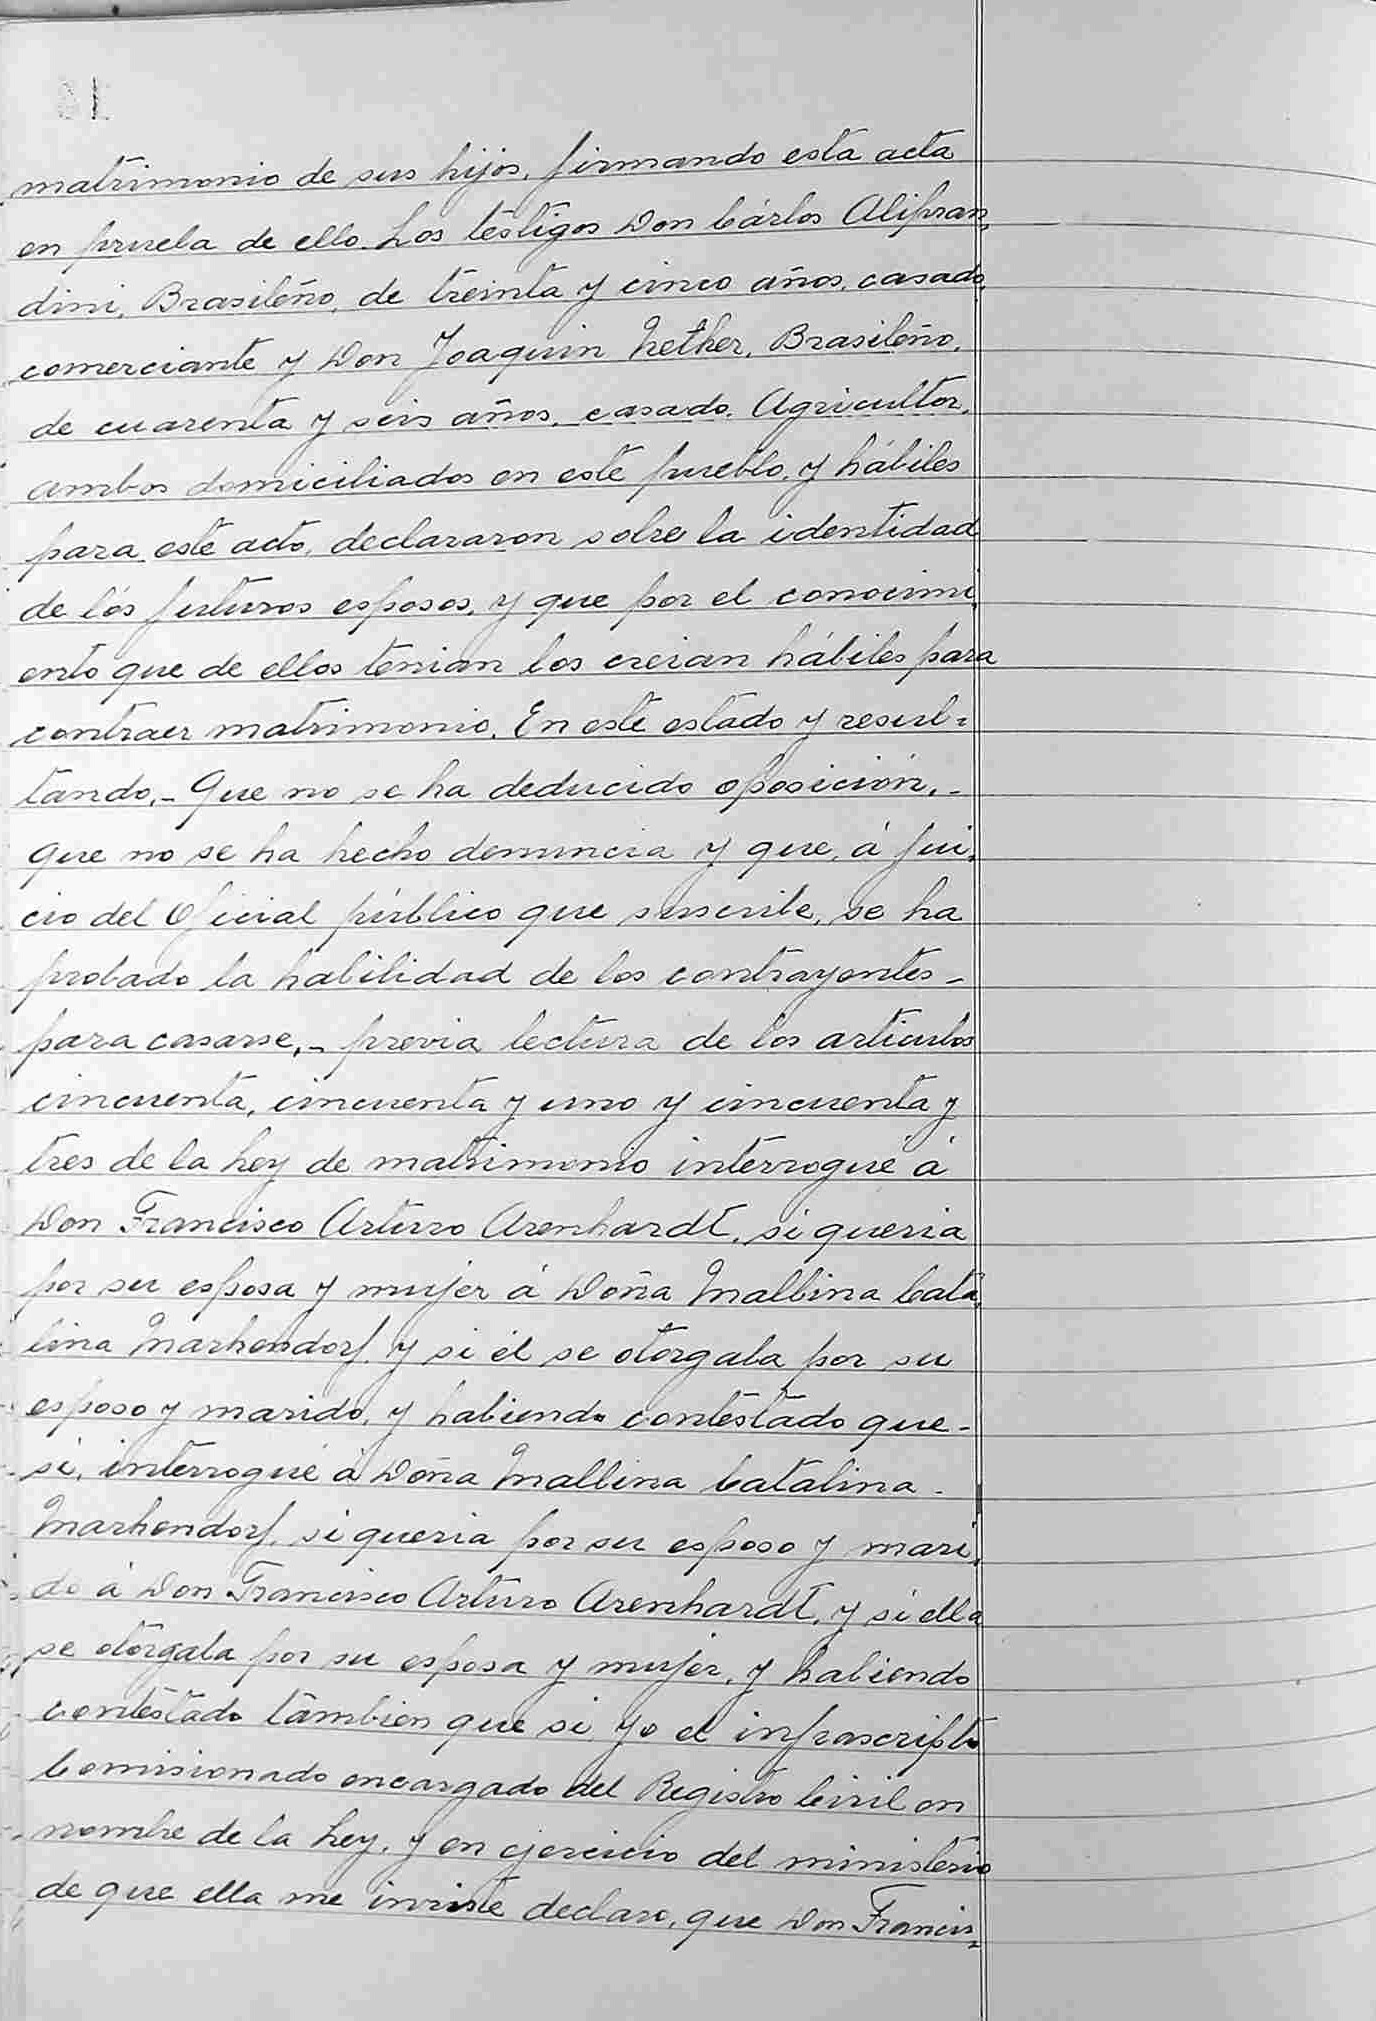 matrimonio de sus hijos, firmando esta acta
en prueba de ello. Los testigos Don Cárlos Alipran,
dini, Brasileño, de treinta y cinco años, casado,
comerciante y Don Joaquin Nether, Brasileño,
de cuarenta y seis años, casado, Agricultor,
ambos domiciliados en este pueblo, y hábiles
para este acto, declararon sobre la identidad
de los futuros esposos, y que por el conocimi,
ento que de ellos tenian los creian hábiles para
contraer matrimonio. En este estado y resul=
tando,- Que no se ha deducido oposición,-
que no se ha hecho denuncia y que, á jui,
cio del Oficial público que suscribe, se ha
probado la habilidad de los contrayentes-
para casarse,- previa lectura de los articulos
cincuenta, cincuenta y uno y cincuenta y
tres de la Ley de matrimonio interrogué á
Don Francisco Arturo Arenhardt, si queria
por su esposa y mujer á Doña Malbina Cata,
lina Markendorf y si él se otorgaba por su
esposo y marido, y habiendo contestado que-
si, interrogué á Doña Malbina Catalina-
Markendorf, si queria por su esposo y mari,
do á Don Francisco Arturo Arenhardt, y si ella
se otorgaba por su esposa y mujer, y habiendo
contestado tambien que si, yo el infrascripto
Comisionado encargado del Registro Civil en
nombre de la Ley, y en ejercicio del ministerio
de que ella me inviste declaro, que Don Francis,